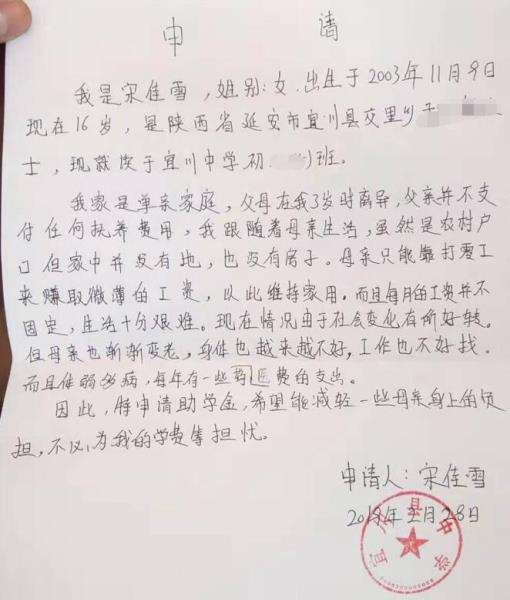 申 请
我是宋佳雪，姓别：女．出生于2003年11月9日
现在16岁，是陕西省延安市宜川县交里乡
士，现就读于宜川中学初 )班。
我家是单亲家庭，父母在我3岁时离异，父亲并不支
付任何抚养费用，我跟随着母亲生活，虽然是农村户
口但家中并没有地，也没有房子。母亲只能靠打零工
来赚取微薄的工资，以此维持家用。而且每月的工资并不
固定，生活十分艰难。现在情况由于社会变化有所好转。
但母亲也渐渐变老，身体也越来越不好，工作也不好找。
而且体弱多病，每年有一些药医费的支出。
因此，特申请助学金，希望能减轻一些母亲身上的负
担，不必为我的学费等担忧。
申请人：宋佳雪
2019年 月28日
宜川县中学